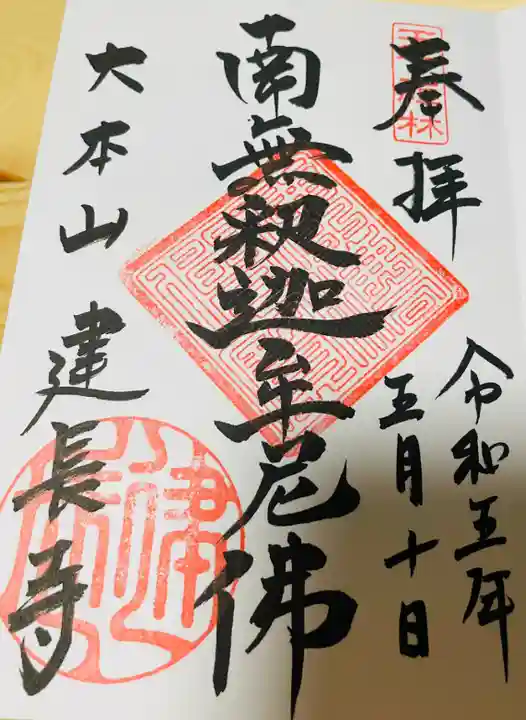 奉拝
令和五年
五月十日
南無釈迦牟尼佛
大本山 建長寺